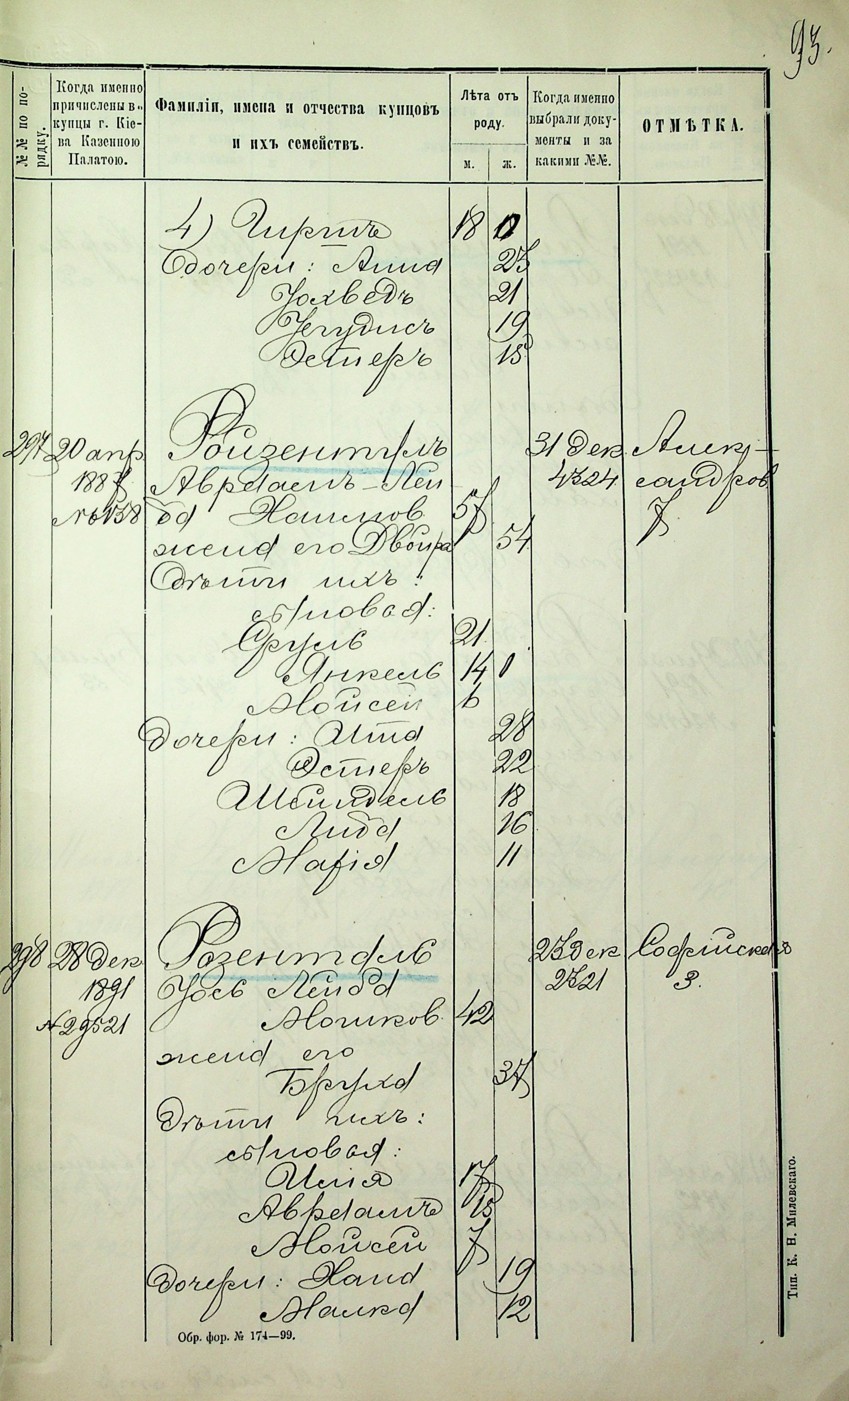 93.
№№ по по-
рядку.
Когда именно
причислены в
купцы г. Кіе-
ва Казенною
Палатою.
Фамиліи, имена и отчества купцовъ
и ихъ семействъ.
Лѣта отъ
роду.
м. ж.
Когда именно
выбрали доку-
менты и за
какими №№.
ОТМѢТКА.
4) Гиршъ 18
дочери: Анна 23
Іохведъ 21
Іегудисъ 19
Эстеръ 15
297 20 апр Ройзенталь 31 Дек Алек-
1887 Авраамъ-Лей 4324 сандров
№ 6158 ба Хаимов 57 7
жена его Двойра 54
Дѣти ихъ:
сыновья:
Сруль 21
Янкель 14
Мойсей 6
дочери: Ита 28
Эстеръ 22
Шейндель 18
Либа 16
Марія 11
298 28 Дек Розенталь 23 Дек Софійская
1891 Іось Лейба 2321 3.
№ 29521 Мошков 42
жена его
Бруха 37
Дѣти ихъ:
сыновья:
Илія 17
Авраамъ 15
Мойсей 7
дочери: Хана 19
Малка 12
Обр. фор. № 174—99.
Тип. К. Н. Милевскаго.